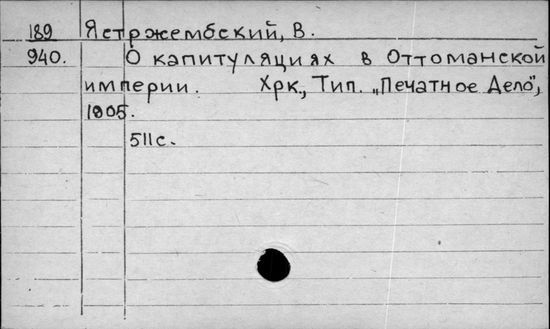 189 Ястржембский, В.
940. О капитуляциях в Оттоманской
империи. Хрк., Тип. „Печатное Дело",
1905.
511с.